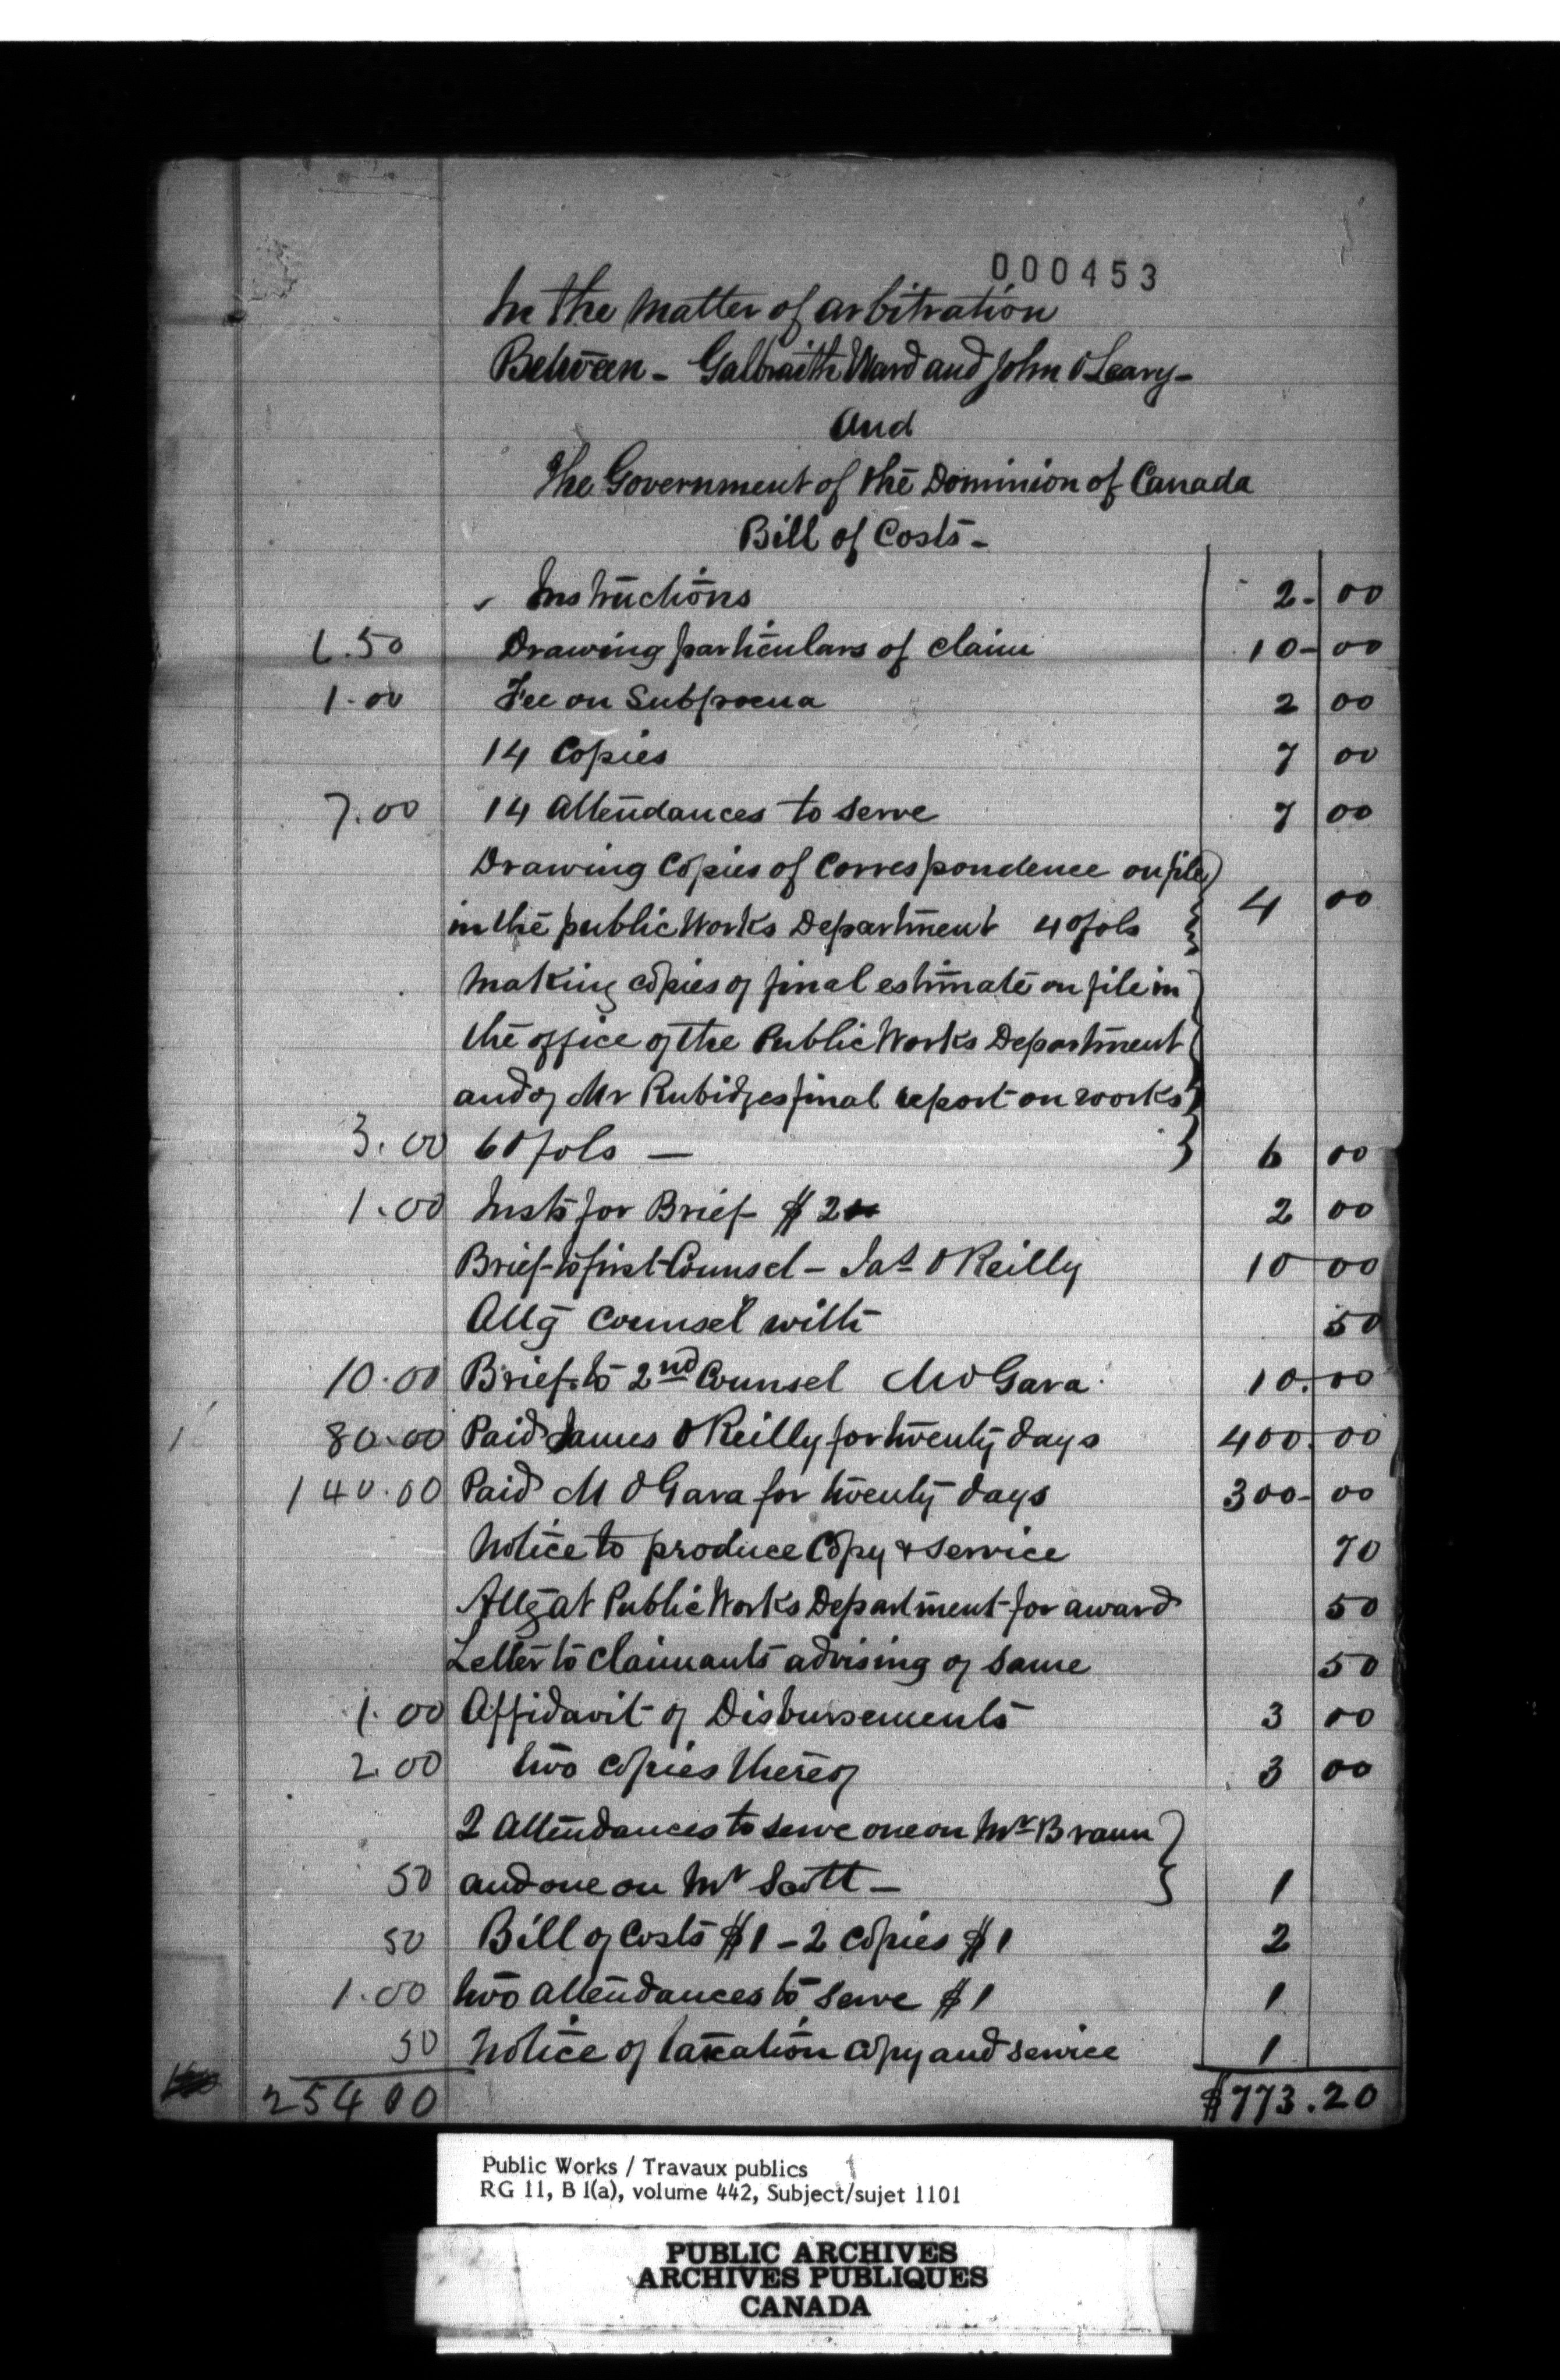 000453
In the Matter of arbitration
Between - Galbraith Ward and John O'Leary -
And
The Government of the Dominion of Canada
Bill of Costs -
Instructions 2 - 00
6.50 Drawing particulars of claim 10 - 00
1.00 Fee on Subpoena 2 00
14 Copies 7 00
7.00 14 Attendances to serve 7 00
Drawing Copies of Correspondence on file
in the public Works Department 40 fols 4 00
Making copies of final estimate on file in
the office of the Public Works Department
and of Mr Rubidges final report on works
3.00 60 fols — 6 00
1.00 Insts for Brief $2 2 00
Brief to first Counsel - Jas O'Reilly 10 00
Attg Counsel with 50
10.00 Brief to 2nd Counsel M O'Gara 10.00
80.00 Paid James O'Reilly for twenty days 400.00
140.00 Paid M O'Gara for twenty days 300 - 00
Notice to produce Copy & service 70
Attg at Public Works Department for award 50
Letter to Claimants advising of same 50
1.00 Affidavit of Disbursements 3 00
2.00 two copies thereof 3 00
2 Attendances to serve one on Mr Braun
50 and one on Mr Scott - 1
50 Bill of Costs $1 - 2 copies $1 2
1.00 two attendances to serve $1 1
50 Notice of taxation copy and service 1
254 00 $773.20
Public Works / Travaux publics
RG 11, B 1(a), volume 442, Subject/sujet 1101
PUBLIC ARCHIVES
ARCHIVES PUBLIQUES
CANADA